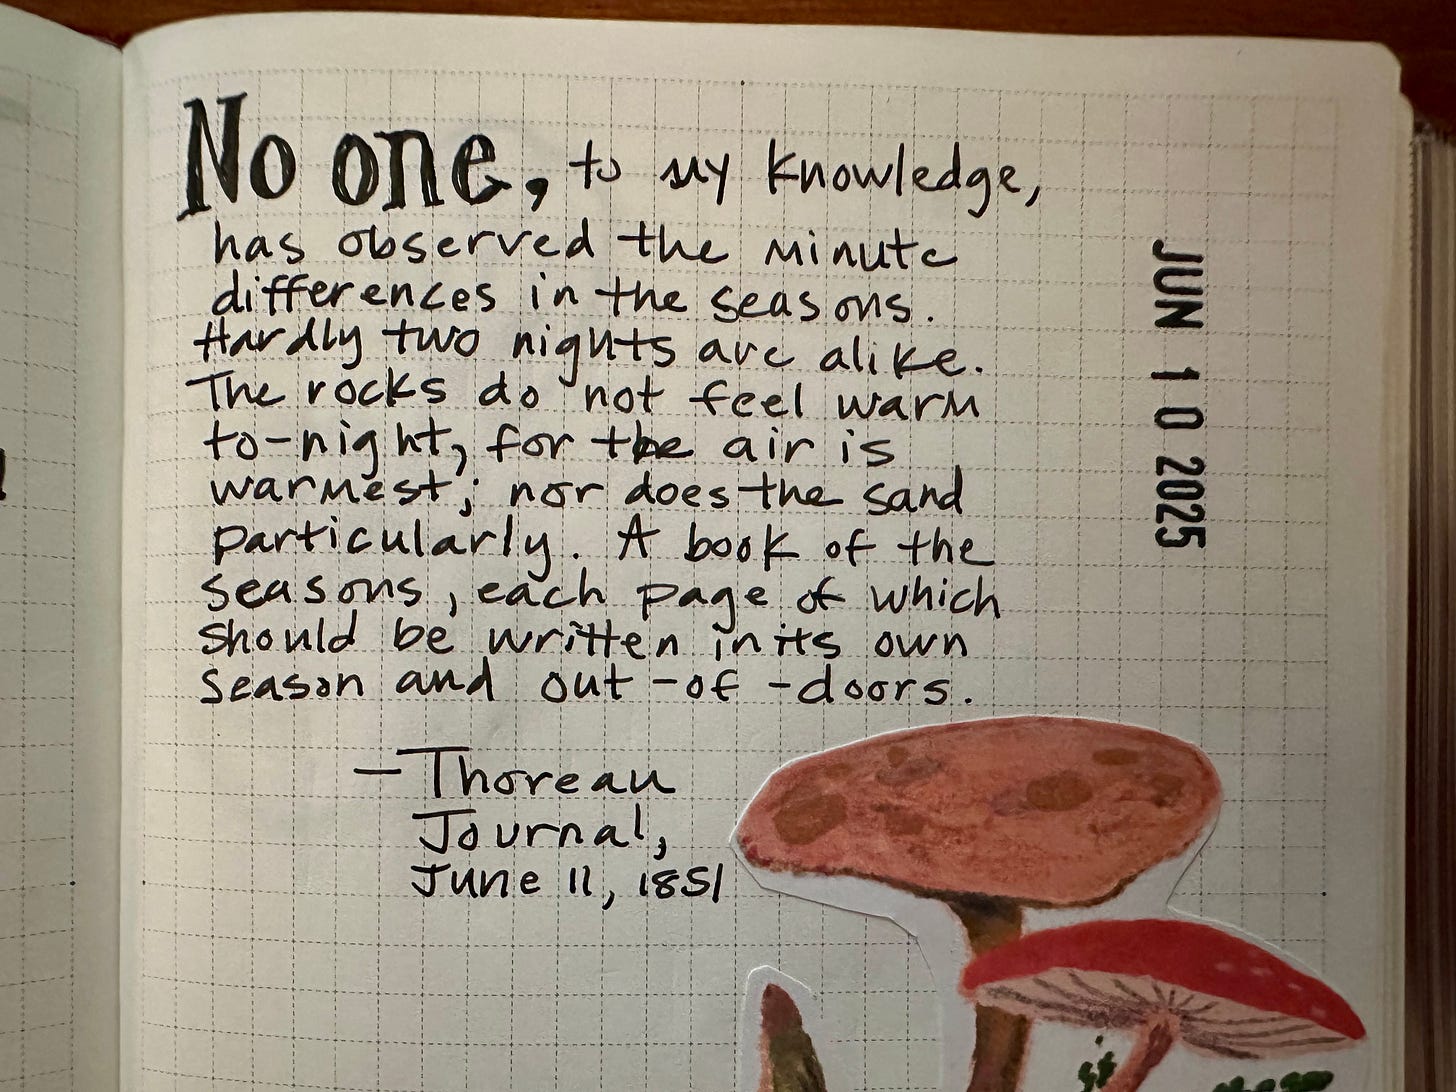 No one, to my knowledge,
has observed the minute
differences in the seasons.
Hardly two nights are alike.
The rocks do not feel warm
to-night, for the air is
warmest; nor does the sand
particularly. A book of the
seasons, each page of which
should be written in its own
season and out-of-doors.
— Thoreau
Journal,
June 11, 1851
JUN 10 2025